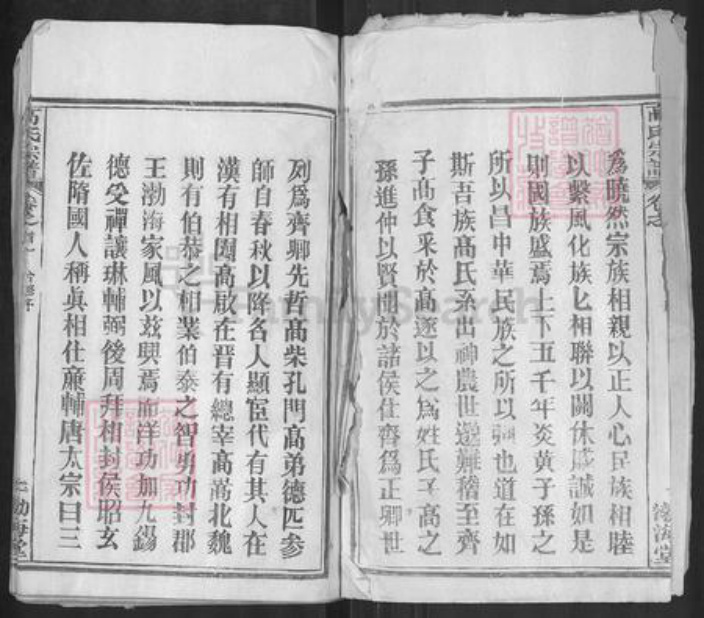 高氏宗譜
卷之
渤海堂
爲曉然宗族相親以正人心民族相睦
以繫風化族匕相聯以關休戚誠如是
則國族盛焉上下五千年炎黃子孫之
所以昌中華民族之所以興也道在如
斯吾族高氏系出神農世遠難稽至齊
子高食采於高遂以之爲姓氏子高之
孫進仲以賢聞於諸侯仕齊爲正卿世
列爲齊卿先哲高柴孔門高弟德匹參
師自春秋以降名人顯宦代有其人在
漢有相國高啟在晋有總宰高嵩北魏
則有伯恭之相業伯泰之智勇功封郡
王渤海家風以茲興焉而洋功加九錫
德受禪讓琳輔弼後周拜相封侯昭玄
佐隋國人稱眞相仕廉輔唐太宗曰三
高氏宗譜
卷之首
渤海堂
FamilySearch